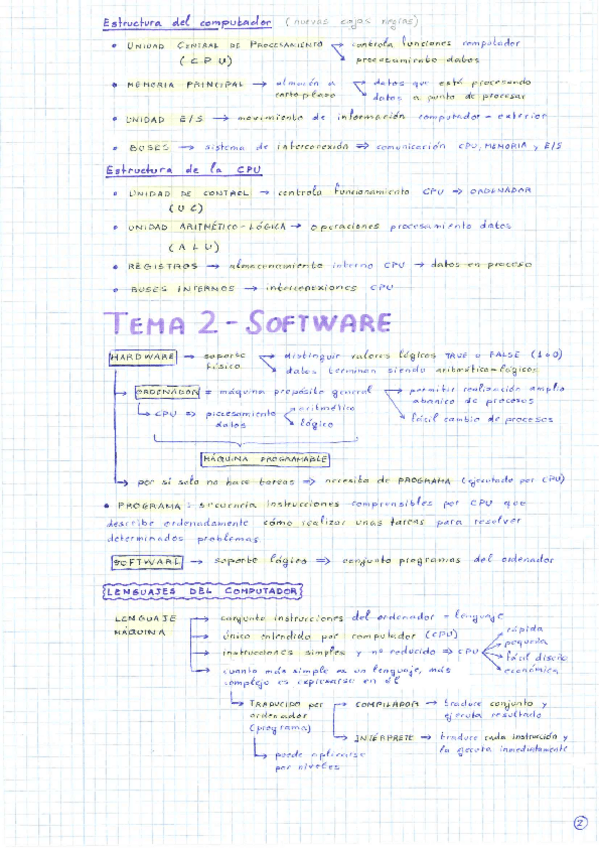 Estructura del computador (nuevas cajas negras)
• UNIDAD CENTRAL DE PROCESAMIENTO → controla funciones computador
(CPU) → procesamiento datos
• MEMORIA PRINCIPAL → almacén a → datos que esté procesando
corto plazo → datos a punto de procesar
• UNIDAD E/S → movimiento de información computador - exterior
• BUSES → sistema de interconexión ⇒ comunicación CPU, MEMORIA y E/S
Estructura de la CPU
• UNIDAD DE CONTROL → controla funcionamiento CPU ⇒ ORDENADOR
(UC)
• UNIDAD ARITMÉTICO-LÓGICA → operaciones procesamiento datos
(ALU)
• REGISTROS → almacenamiento interno CPU → datos en proceso
• BUSES INTERNOS → interconexiones CPU
TEMA 2 - SOFTWARE
HARDWARE → soporte → distinguir valores lógicos TRUE o FALSE (1 o 0)
físico → datos terminan siendo aritmético-lógicos
→ ORDENADOR = máquina propósito general → permitir realización amplio
abanico de procesos
→ CPU ⇒ procesamiento aritmético → fácil cambio de procesos
datos lógico
MÁQUINA PROGRAMABLE
→ por si solo no hace tareas ⇒ necesita de PROGRAMA (ejecutado por CPU)
• PROGRAMA: secuencia instrucciones comprensibles por CPU que
describe ordenadamente cómo realizar unas tareas para resolver
determinados problemas
SOFTWARE → soporte lógico ⇒ conjunto programas del ordenador
LENGUAJES DEL COMPUTADOR
LENGUAJE → conjunto instrucciones del ordenador = lenguaje
MÁQUINA → único entendido por computador (CPU) → rápida
→ instrucciones simples y nº reducido ⇒ CPU → pequeña
→ fácil diseño
→ cuanto más simple es un lenguaje, más → económica
complejo es expresarse en él
→ TRADUCIDO por → COMPILADOR → traduce conjunto y
ordenador ejecuta resultado
(programa) → INTÉRPRETE → traduce cada instrucción y
la ejecuta inmediatamente
→ puede aplicarse
por niveles
2